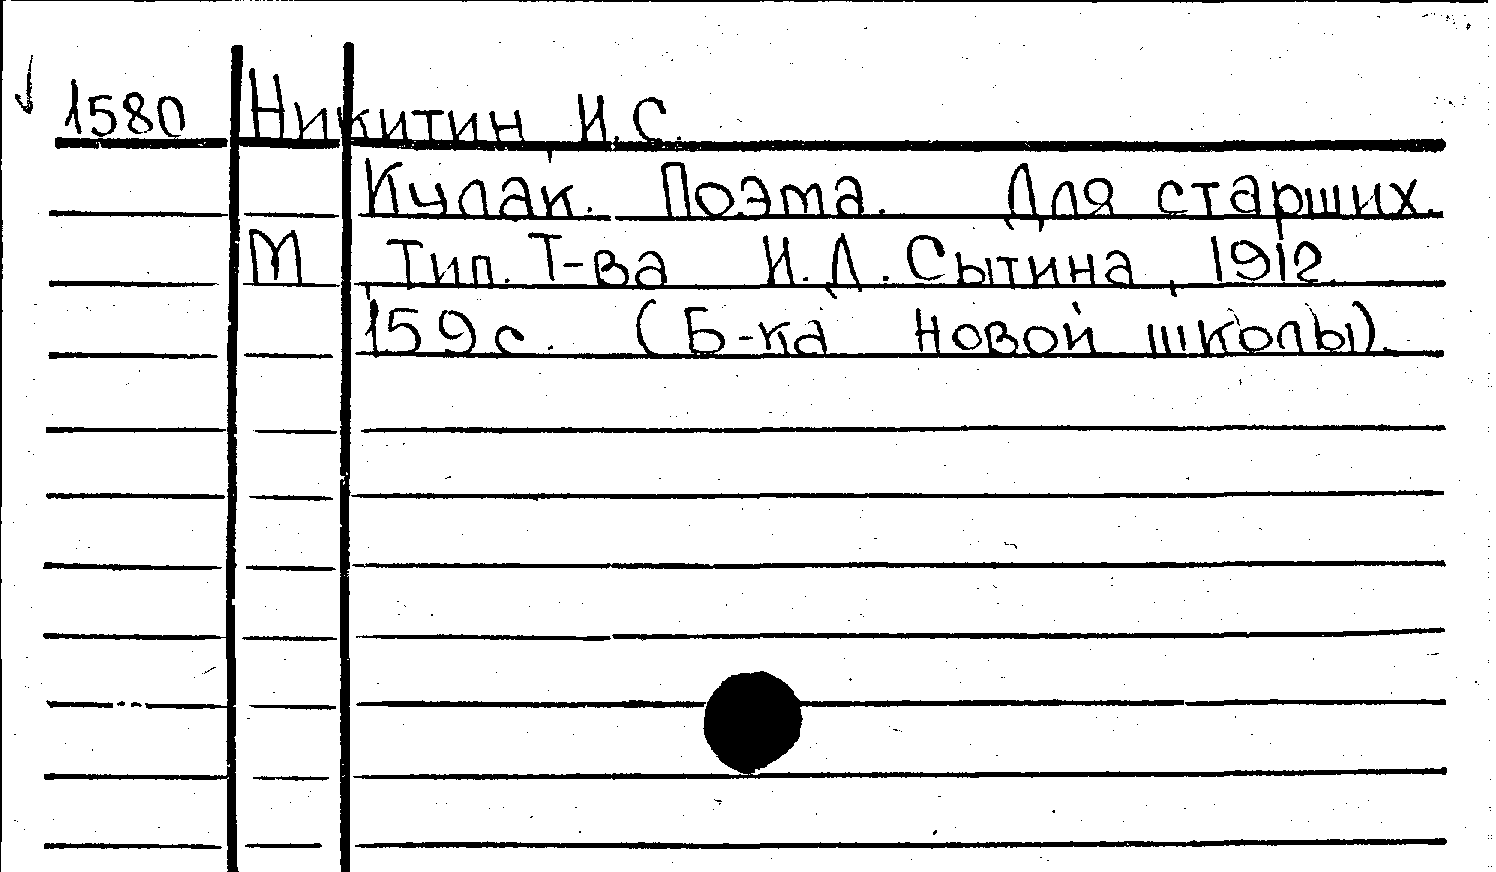 1580 Никитин, И.С.
Кулак. Поэма. Для старших.
М Тип. Т-ва И.Д. Сытина, 1912.
159 с. (Б-ка новой школы).